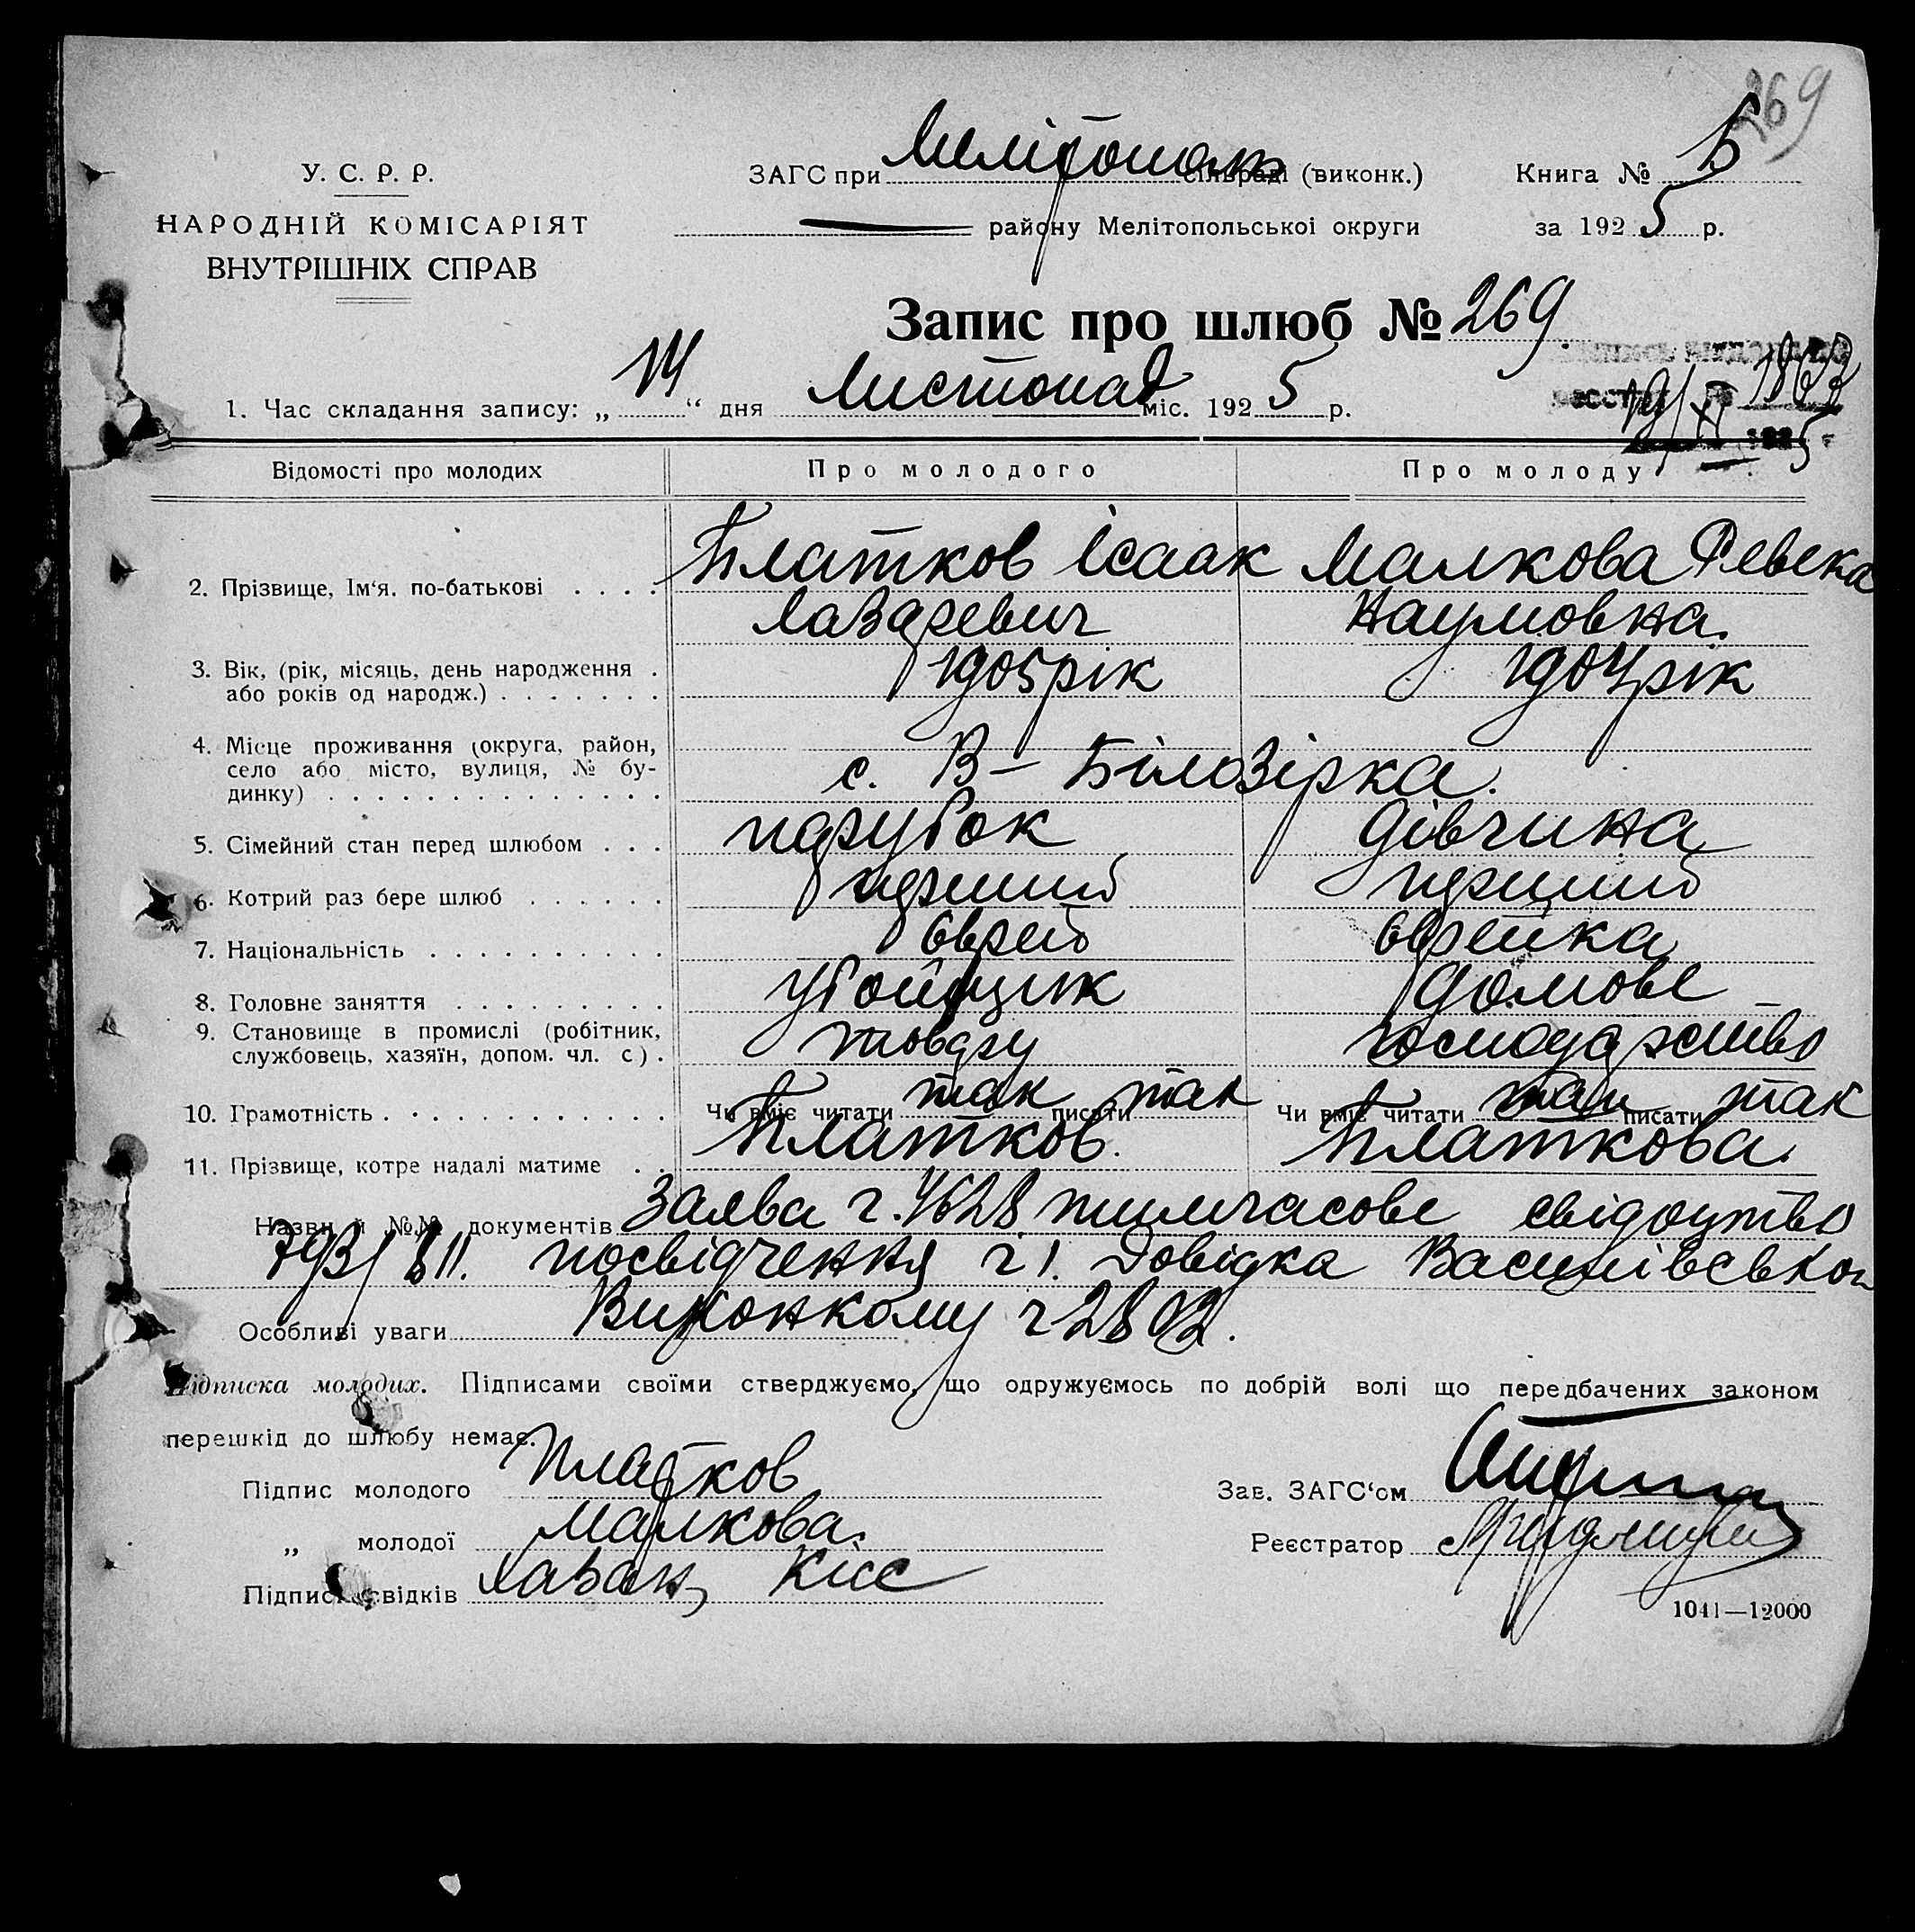 269
У. С. Р. Р.
НАРОДНІЙ КОМІСАРІЯТ
ВНУТРІШНІХ СПРАВ
ЗАГС при Мелітополь сільраді (виконк.)
району Мелітопольськоі округи
Книга № 5
за 1925 р.
Запис про шлюб № 269
1. Час складання запису: „14“ дня Листопад міс. 1925 р.
19/XI 1925
Відомості про молодих Про молодого Про молоду
2. Прізвище, Ім‘я, по-батькові . . . . Платков Ісаак Малкова Ревека
Лазаревич Наумовна.
3. Вік, (рік, місяць, день народження . 1905 рік 1904 рік
або років од народж.) . . . . . . .
4. Місце проживання (округа, район,
село або місто, вулиця, № бу- с. В – Білозірка.
динку) . . . . . . . . . . . . . .
5. Сімейний стан перед шлюбом . . . парубок дівчина
6. Котрий раз бере шлюб . . . . . . перший перший
7. Національність . . . . . . . . . . Єврей Єврейка
8. Головне заняття . . . . . . . . . убойщик домове
9. Становище в промислі (робітник, товару господарство
службовець, хазяїн, допом. чл. с) .
10. Грамотність . . . . . . . . . . . . Чи вміє читати так писати так Чи вміє читати так писати так
11. Прізвище, котре надалі матиме . . Платков. Платкова.
Назви й №№ документів Заява ч. 4628 тимчасове свідоцтво
793/811. посвідчення ч 1. Довідка
Особливі уваги Виконкому ч 2802.
Підписка молодих. Підписами своїми стверджуємо, що одружуємось по добрій волі що передбачених законом
перешкід до шлюбу немає.
Підпис молодого Платков
„ молодої Малкова.
Підписи свідків Кісс
Зав. ЗАГС‘ом
Реєстратор
1041—12000